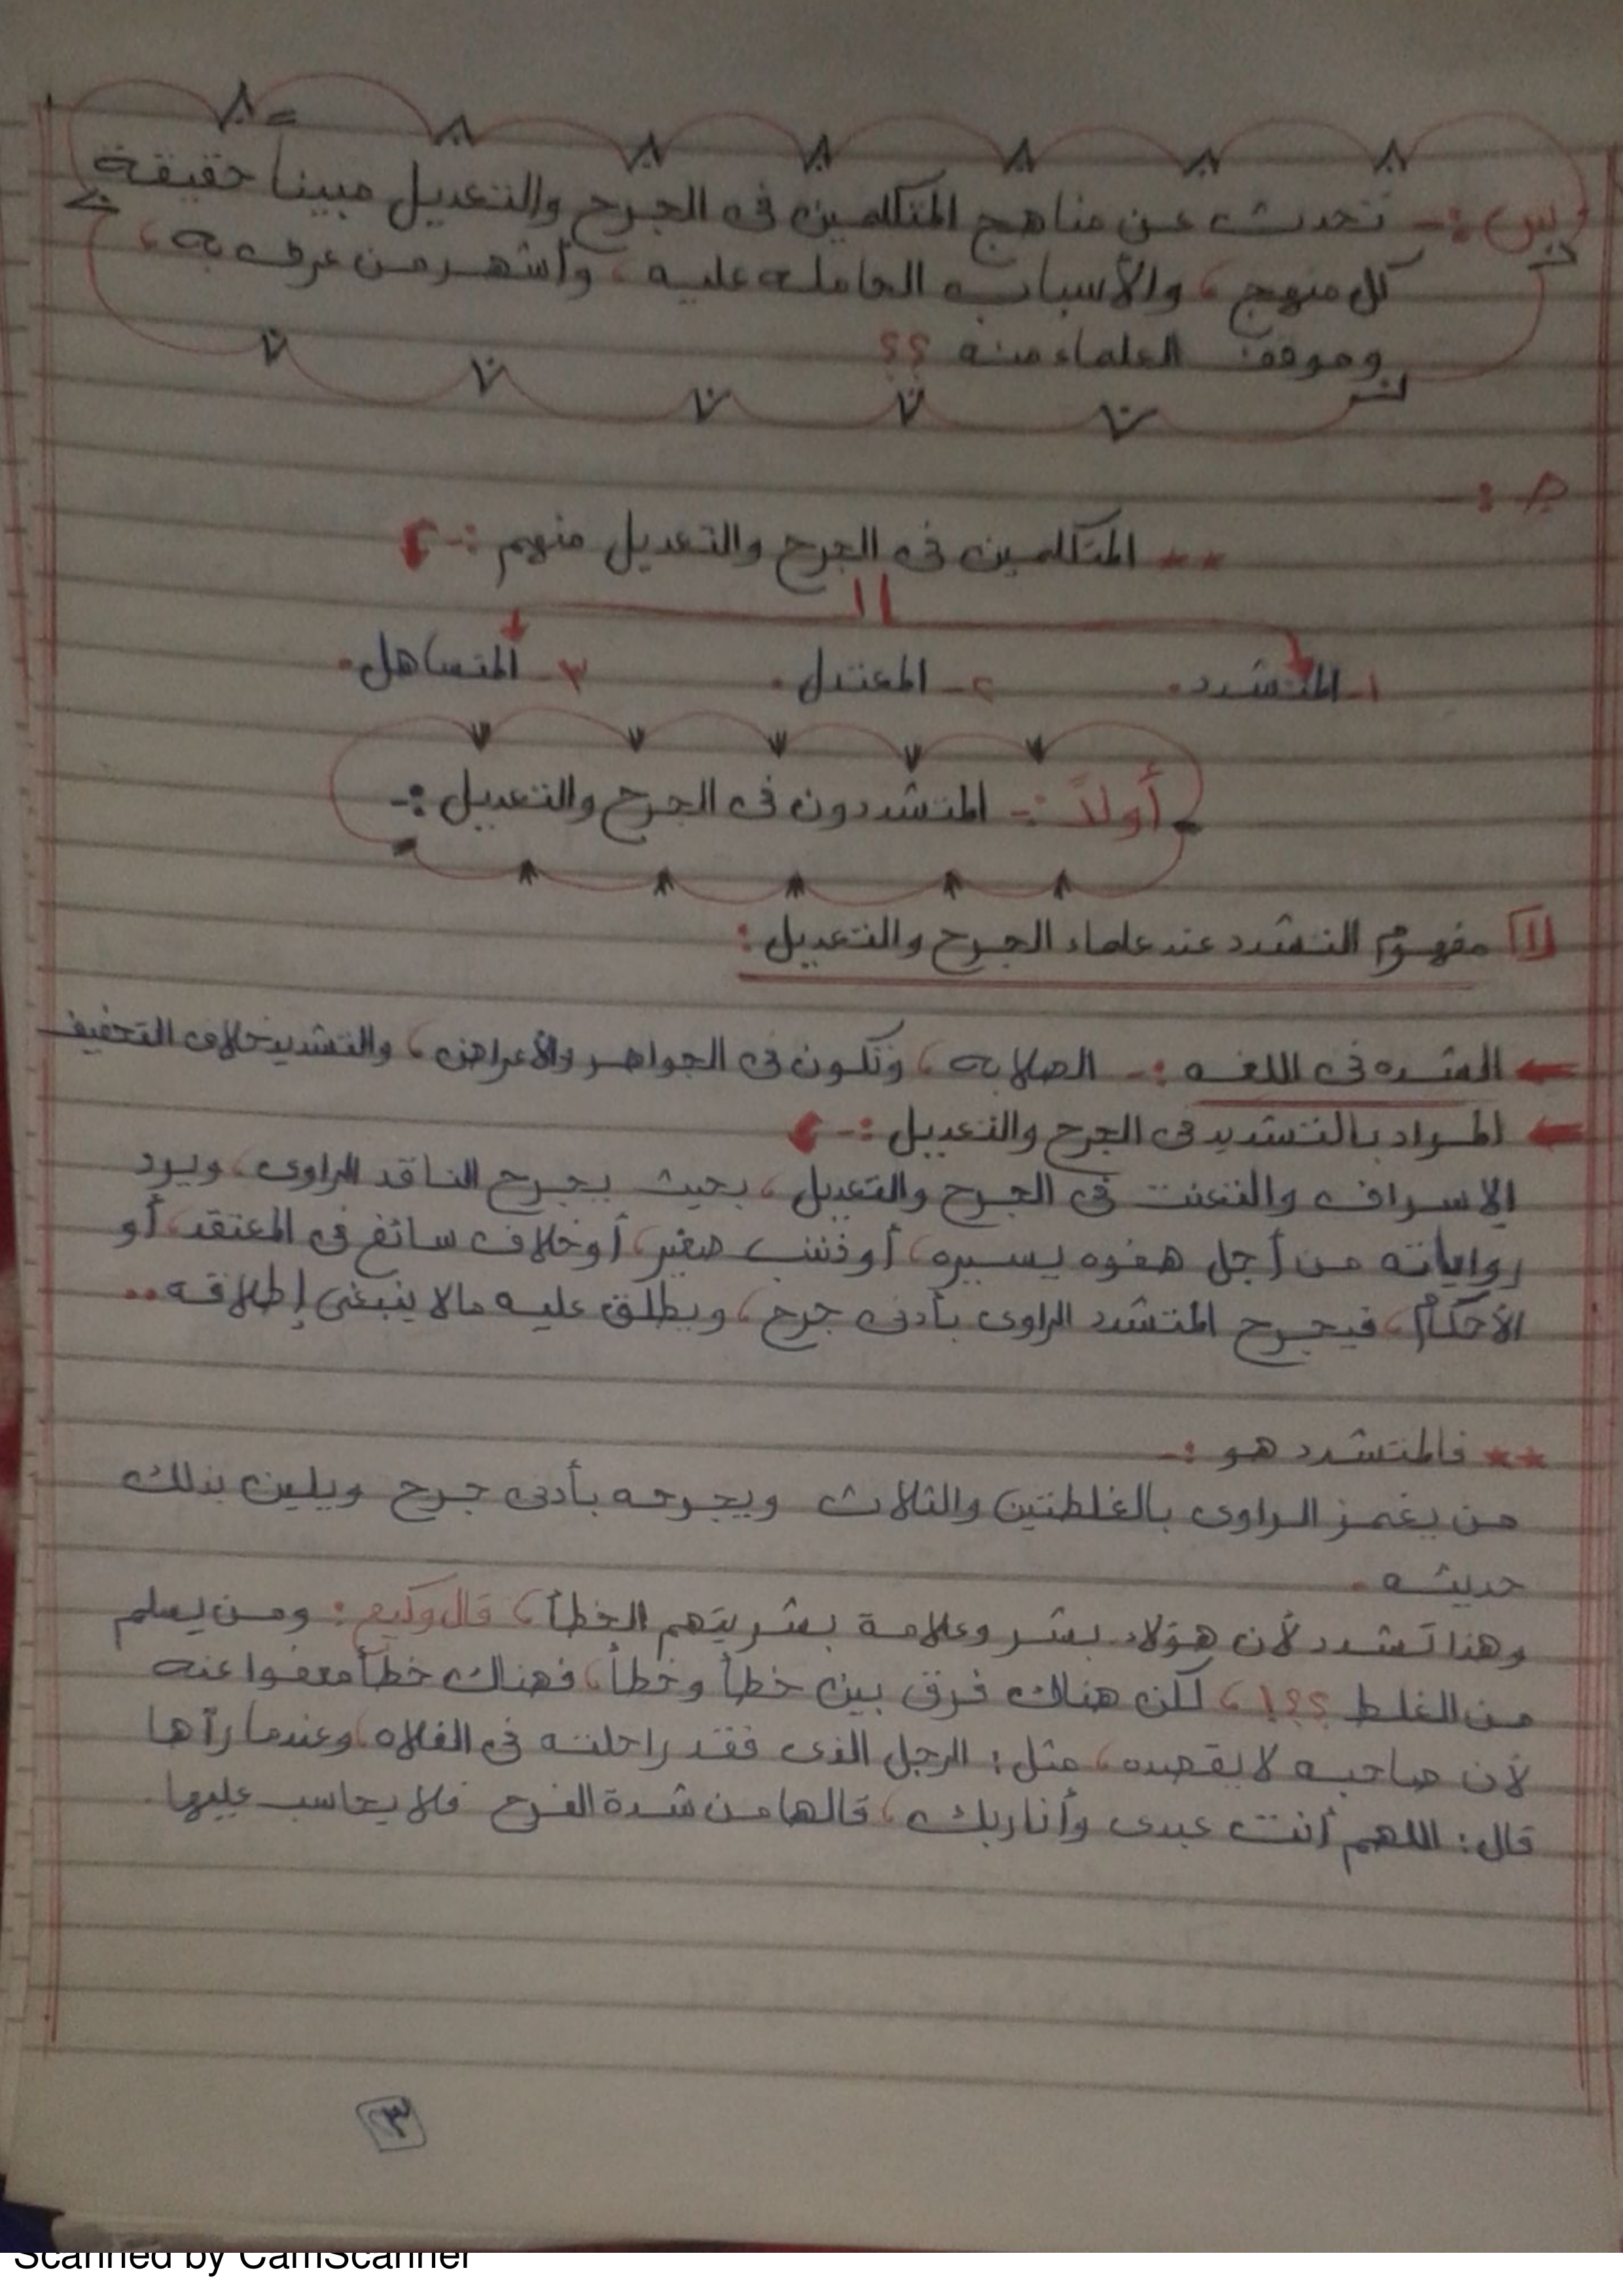 س :- تحدث عن مناهج المتكلمين فى الجرح والتعديل مبيناً حقيقة
كل منهج ، والأسباب الحامله عليه ، وأشهر من عرف به ،
وموقف العلماء منه ؟؟
جـ :-
** المتكلمين فى الجرح والتعديل منهم :-
١- المتشدد. ٢- المعتدل. ٣- المتساهل.
أولاً :- المتشددون فى الجرح والتعديل :-
١ مفهوم التشدد عند علماء الجرح والتعديل :
الشده فى اللغه :- الصلابه ، وتكون فى الجواهر والأعراض ، والتشديد خلاف التخفيف
المراد بالتشديد فى الجرح والتعديل :-
الاسراف والتعنت فى الجرح والتعديل ، بحيث يجرح الناقد الراوى ، ويرد
رواياته من أجل هفوه يسيره ، أو ذنب صغير ، أو خلاف سائغ فى المعتقد ، أو
الأحكام ، فيجرح المتشدد الراوى بأدنى جرح ، ويطلق عليه مالا ينبغى إطلاقه ..
** فالمتشدد هو :-
من يغمز الراوى بالغلطتين والثلاث ويجرحه بأدنى جرح ويلين بذلك
حديثه .
وهذا تشدد لأن هؤلاء بشر وعلامة بشريتهم الخطأ ، قال وكيع : ومن يسلم
من الغلط ؟؟! ، لكن هناك فرق بين خطأ وخطأ ، فهناك خطأ معفوا عنه
لأن صاحبه لا يقصده ، مثل : الرجل الذى فقد راحلته فى الفلاه ، وعندما رآها
قال : اللهم أنت عبدى وأنا ربك ، قالها من شدة الفرح فلا يحاسب عليها .
٣
Scanned by CamScanner